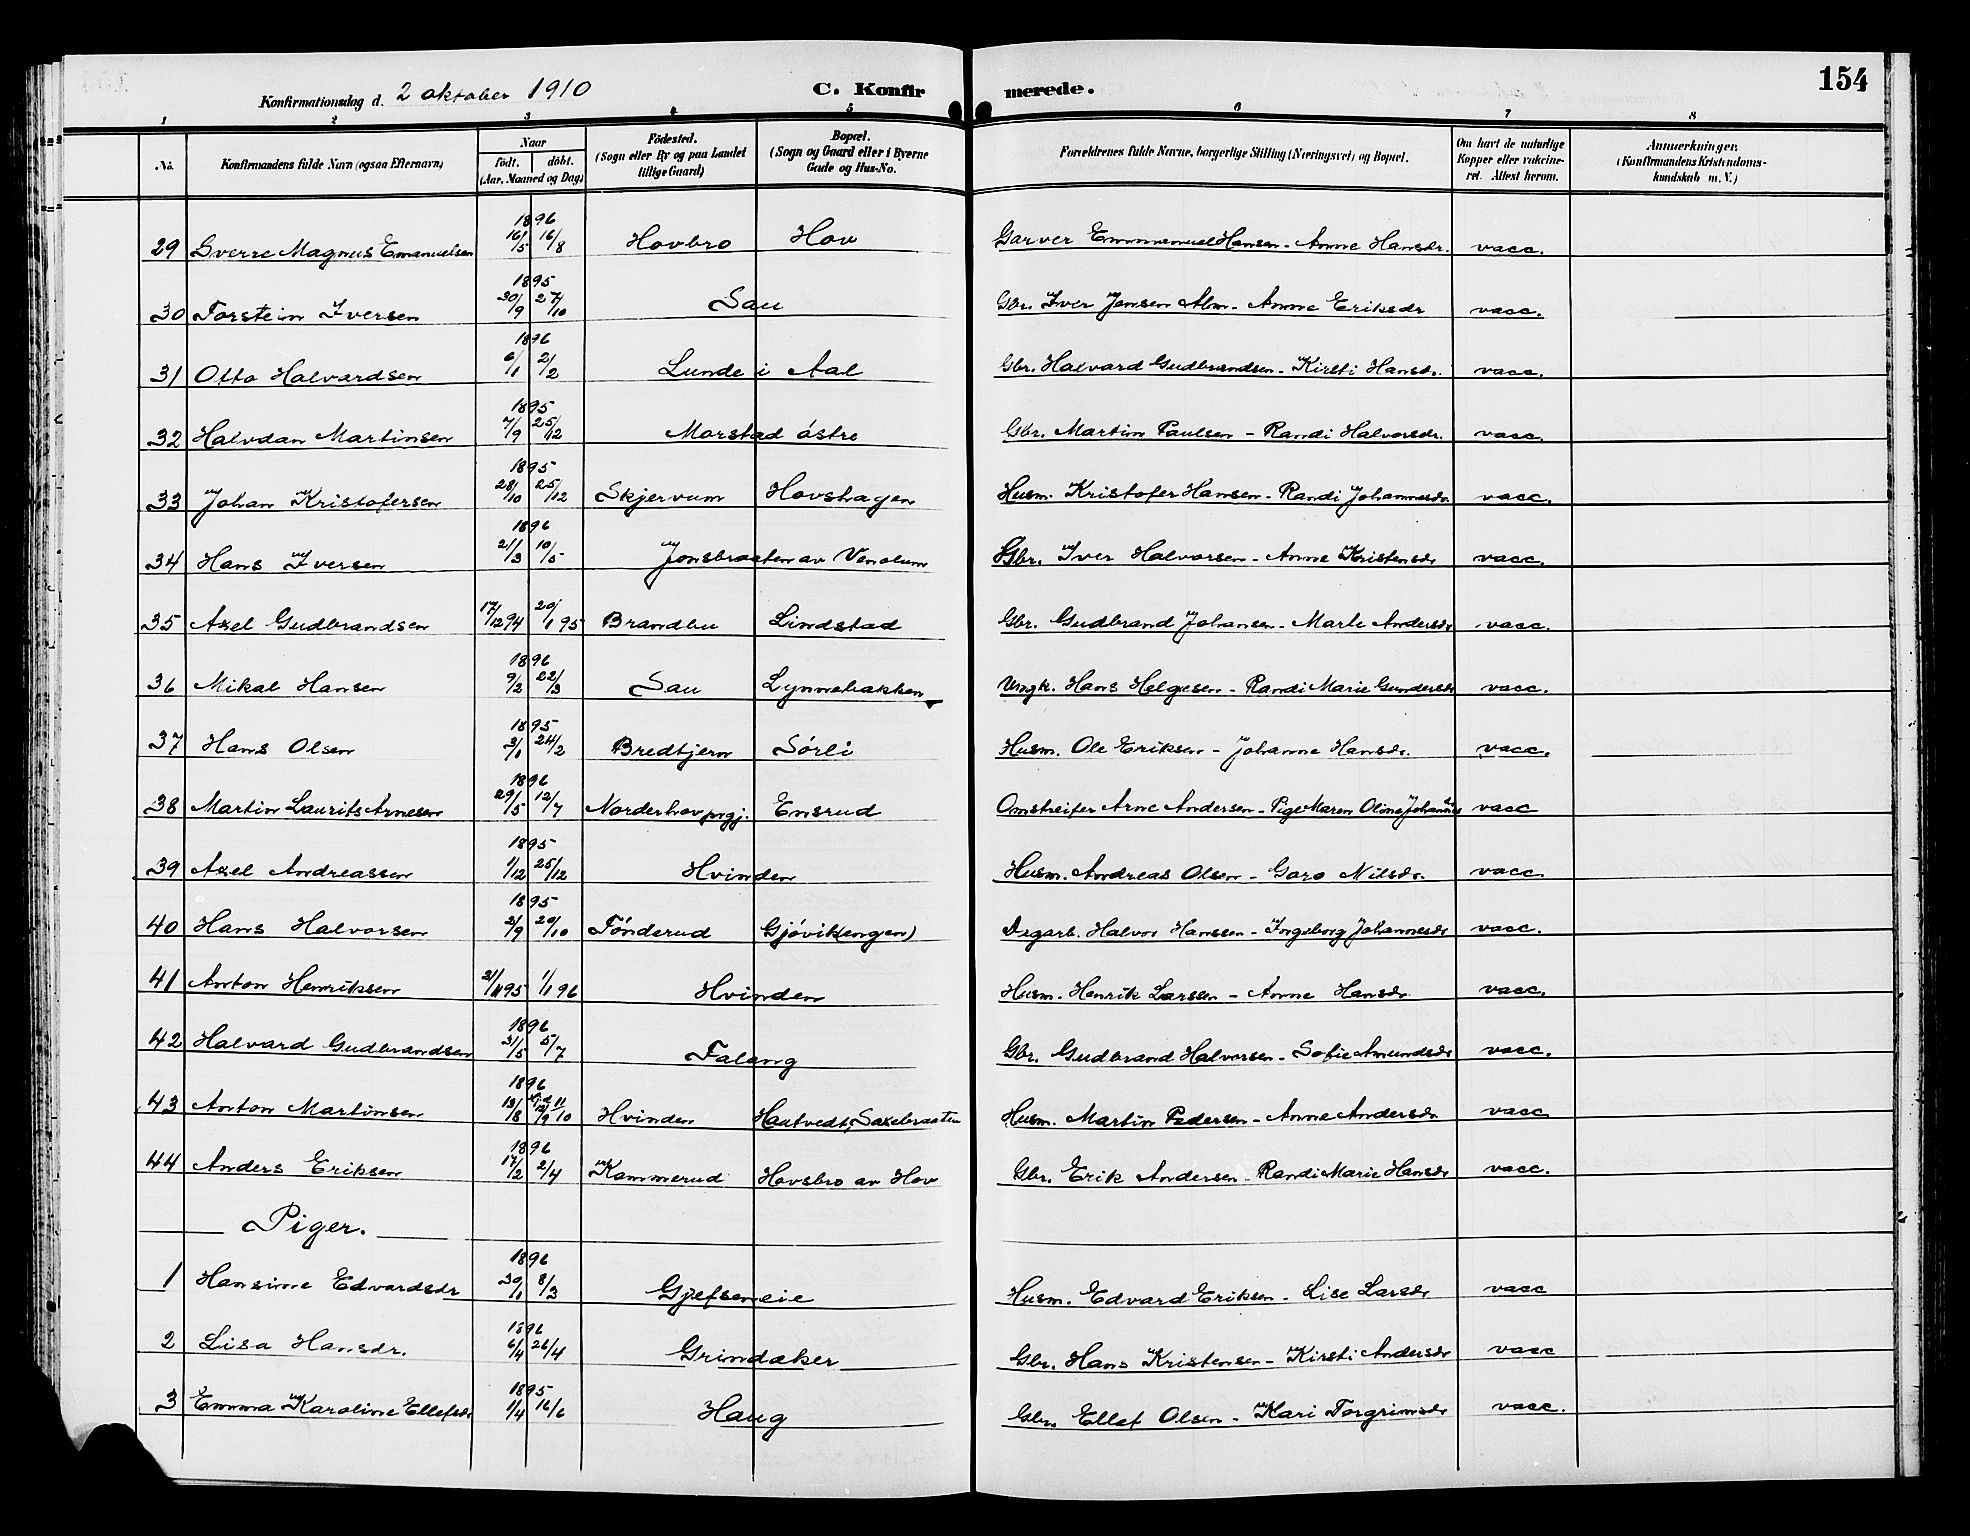 Konfirmationsdag d. 2 oktober 1910 C. Konfirmerede. 154
1 2 3 4 5 6 7 8
No. Konfirmandens fulde Navn (ogsaa Efternavn) Naar født. døbt. (Aar, Maaned og Dag) Fødested. (Sogn eller By og paa Landet tillige Gaard) Bopæl. (Sogn og Gaard eller i Byerne Gade og Hus-No. Forældrenes fulde Navne, borgerlige Stilling (Næringsvei) og Bopæl. Om havt de naturlige Kopper eller vaccineret. Attest herom. Anmerkninger. (Konfirmandens Kristendomskundskab m. V.)
29 Sverre Magnus Emanuelsen 1896 16/5 16/8 Hovbro Hov Garver Emmanuel Hansen - Anne Hansdr. vacc.
30 Torstein Iversen 1895 30/9 27/10 Sau Gbr. Iver Jensen Alm - Anne Eriksdr vacc.
31 Otto Halvardsen 1896 6/1 2/2 Lunde i Aal Gbr. Halvard Gudbrandsen - Kirsti Hansdr. vacc.
32 Halvdan Martinsen 1895 7/9 25/12 Morstad østre Gbr. Martin Paulsen - Randi Halvorsdr. vacc.
33 Johan Kristofersen 1895 28/10 25/12 Skjervum Hovshagen Husm. Kristofer Hansen - Randi Johannesdr vacc.
34 Hans Iversen 1896 21/3 10/5 Jonsbraaten av Venolum Gbr. Iver Halvorsen - Anne Kristensdr vacc.
35 Axel Gudbrandsen 17/12 94 20/1 95 Brandbu Lindstad Gbr. Gudbrand Johansen - Marte Andersdr vacc.
36 Mikal Hansen 1896 9/2 22/3 Sau Lynnebakken Ungk. Hans Helgesen - Randi Marie Gundersdr vacc.
37 Hans Olsen 1895 3/1 24/2 Bredtjern Sørli Husm. Ole Eriksen - Johanne Hansdr. vacc.
38 Martin Laurits Arnesen 1896 29/5 12/7 Norderhov prgj. Ensrud Omstreifer Arne Andersen - Pige Maren Oline Johannesdr vacc
39 Axel Andreassen 1895 1/12 25/12 Hvinden Husm. Andreas Olsen - Goro Nilsdr. vacc.
40 Hans Halvorsen 1895 2/9 20/10 Tønderud Gjøvik(engen) Dagarb. Halvor Hanssen - Ingeborg Johannesdr vacc.
41 Anton Henriksen 21/11 95 1/1 96 Hvinden Husm. Henrik Larssen - Anne Hansdr. vacc.
42 Halvard Gudbrandsen 1896 31/5 5/7 Falang Gbr. Gudbrand Halvorsen - Sofie Amundsdr vacc.
43 Anton Martinsen 1896 13/8 13/9 11/10 Hvinden Hautvedt, Saxebraaten Husm. Martin Pedersen - Anne Andersdr vacc
44 Anders Eriksen 1896 17/2 2/4 Kammerud Hovsbro av Hov Gbr. Erik Andersen - Randi Marie Hansdr vacc.
Piger.
1 Hansine Edvardsdr 1896 30/1 8/3 Gjefseneie Husm. Edvard Eriksen - Lise Larsdr vacc
2 Lisa Hansdr. 1896 6/4 26/4 Grindaker Gbr. Hans Kristensen - Kirsti Andersdr vacc
3 Emma Karoline Ellefsdr 1895 1/4 16/6 Haug Gbr. Ellef Olsen - Kari Torgrimsdr vacc.